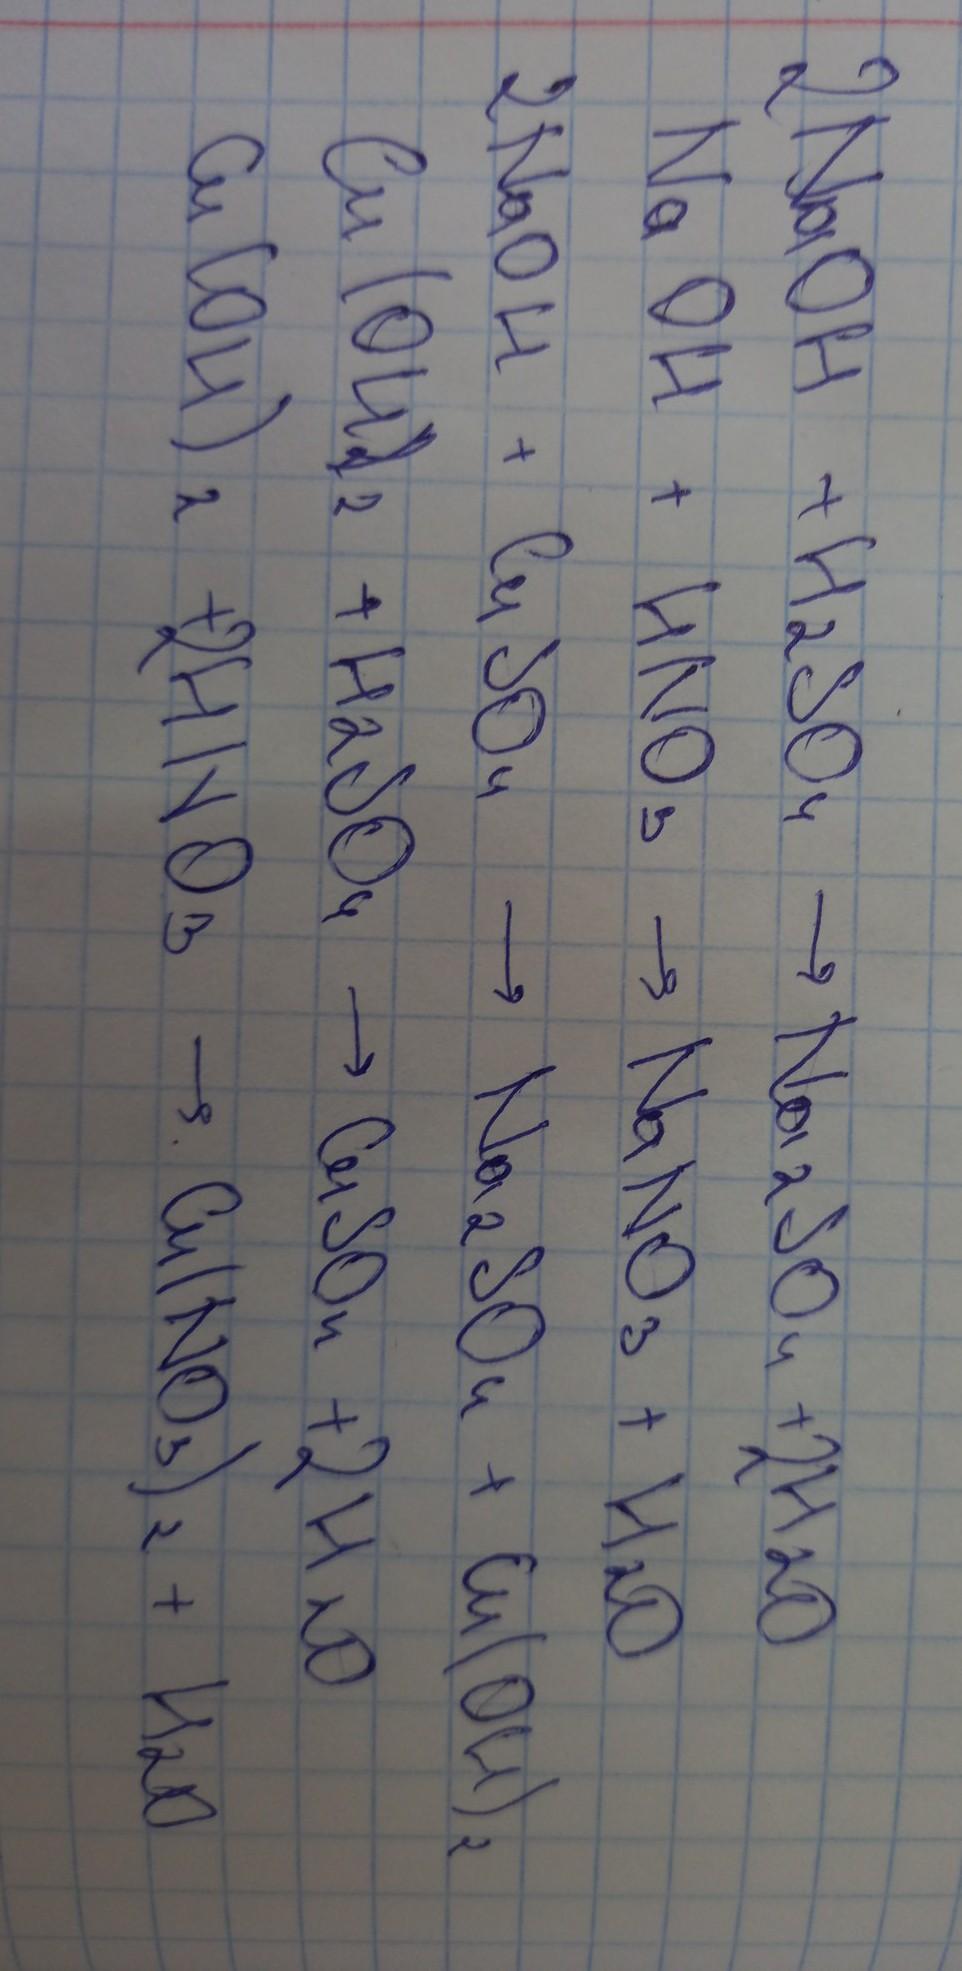 2NaOH + H2SO4 → Na2SO4 + 2H2O
NaOH + HNO3 → NaNO3 + H2O
2NaOH + CuSO4 → Na2SO4 + Cu(OH)2
Cu(OH)2 + H2SO4 → CuSO4 + 2H2O
Cu(OH)2 + 2HNO3 → Cu(NO3)2 + H2O